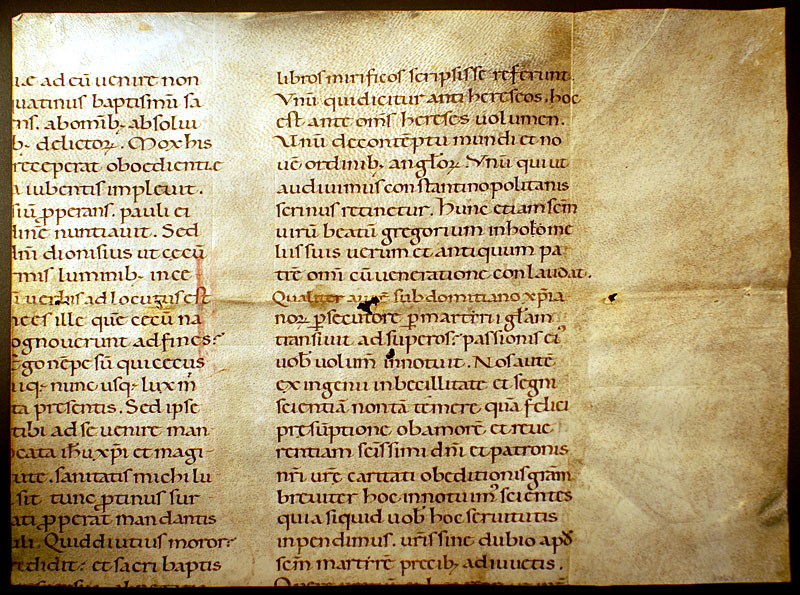 uæ ad eū uenire non
uatinus baptismū sa
ns. abomīb; absolui
b; delictoꝝ. Mox his
receperat oboedientie
a iubentis impleuit.
siū ꝓperans. pauli ci
dinē nuntiauit. Sed
dn̄i dionisius ut cecū
mis luminib; in ce
ū uerbis adlocutus est
nces ille quē cecū na
ognouerunt adfines?
ego nēpe sū quicecus
uq; nunc usq; lux m̄
ta presentis. Sed ipse
tibi ad se uenire man
ocata ih̄u xp̄i et magi
ute. sanitatis michi lu
sit tunc ꝓtinus sur
ati ꝓperat mandantis
uli. Quid diutius moror?
redidit: et sacri baptis
libros mirificos scripsisse referunt.
Vnū quidicitur anti hereseos, hoc
est ante om̄s hereses uolumen.
Vnū decontēptu mundi et no
uē ordinib; angl̄oꝝ. Vnū qui ut
audiuimus constantinopolitanis
scrinus retinetur. Hunc etiam scm̄
uirū beatū gregorium inhōme
lus suis uerum et antiquum pa
trē omī cū ueneratione conlaudat.
Qualiter autē sub domitiano xp̄ia
noꝝ ꝑsecutore ꝑ martyrii gl̄am
transiuit ad superos: passionis ei᾿
uob̄ volum̄ innotuit. Nos autē
ex ingenii inbecillitate et segni
scientiā non tā temere quā felici
presūptione ob amorē et reue
rentiam scissimi dn̄i et patronis
nr̄i ur̄e caritati obeditionis gr̄am
breuiter hoc innotuim᾿ scientes
quia siquid uob̄ hoc seruitutis
inpendimus. ur̄is sine dubio apd̄
scm̄ martyrē precib; adiuuetis.